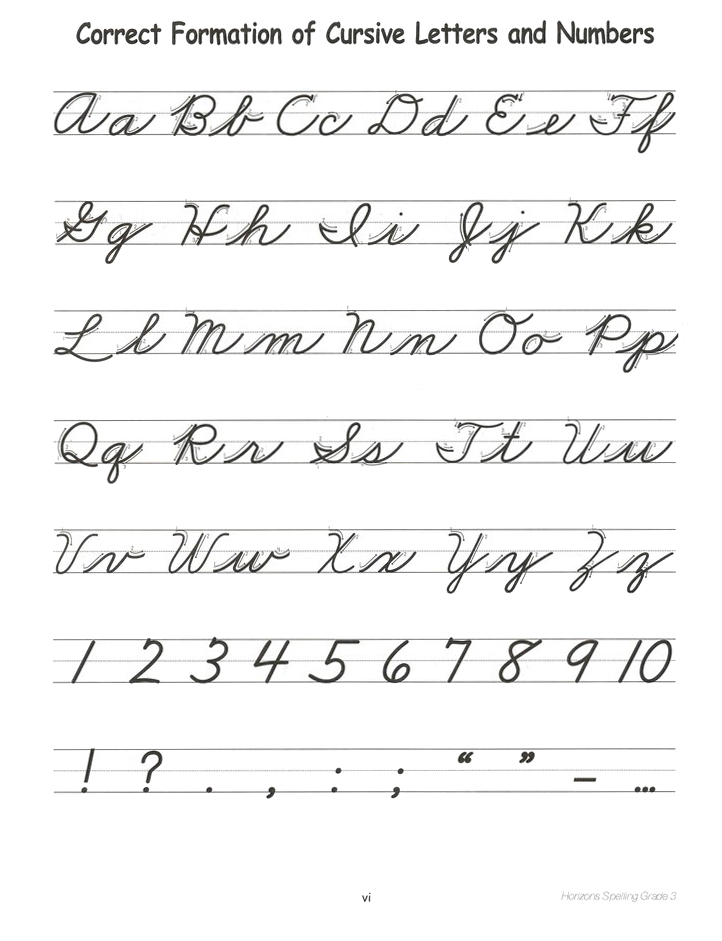 Correct Formation of Cursive Letters and Numbers
Aa Bb Cc Dd Ee Ff
Gg Hh Ii Jj Kk
Ll Mm Nn Oo Pp
Qq Rr Ss Tt Uu
Vv Ww Xx Yy Zz
1 2 3 4 5 6 7 8 9 10
! ? . , : ; “ ” – ...
vi
Horizons Spelling Grade 3